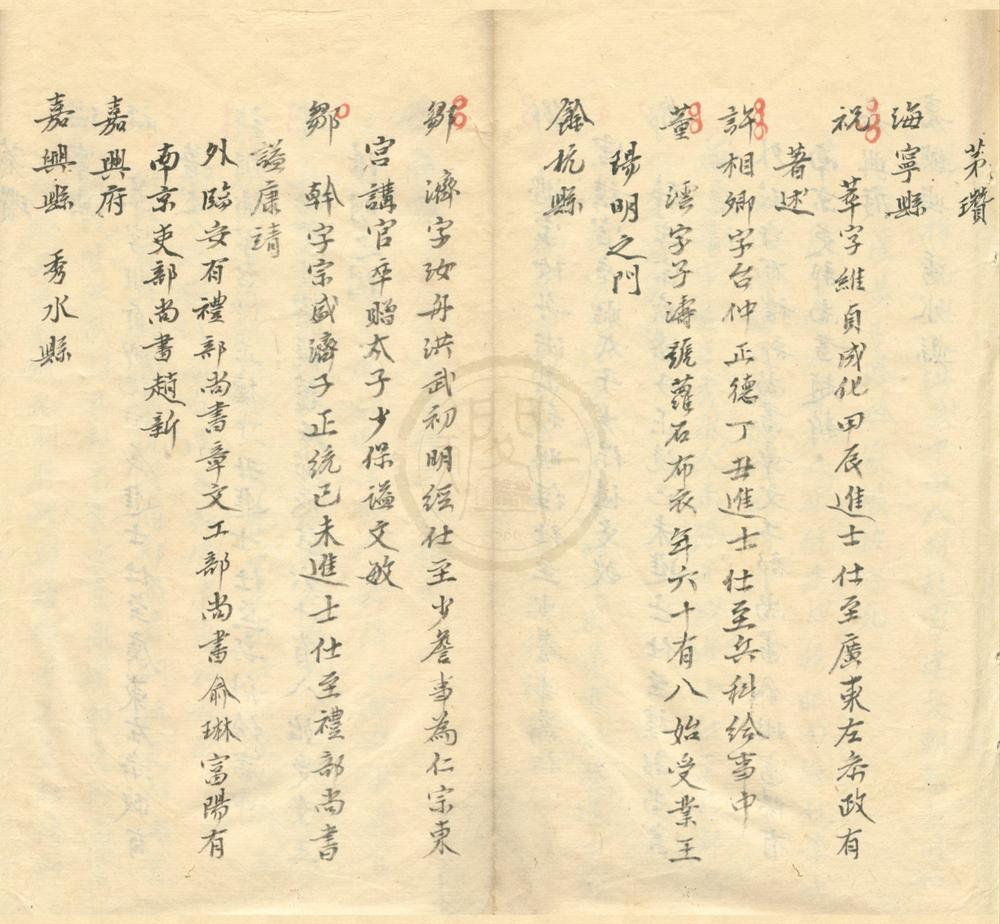 茅瓚
海寧縣
祝 萃字維貞成化甲辰進士仕至廣東左參政有
著述
許相卿字台仲正德丁丑進士仕至兵科給事中
董 澐字子濤號蘿石布衣年六十有八始受業王
陽明之門
餘杭縣
鄒 濟字汝舟洪武初明經仕至少詹事為仁宗東
宮講官卒贈太子少保謚文敏
鄒 幹字宗盛濟子正統己未進士仕至禮部尚書
謚康靖
外臨安有禮部尚書章文工部尚書俞琳富陽有
南京吏部尚書趙新
嘉興府
嘉興縣 秀水縣